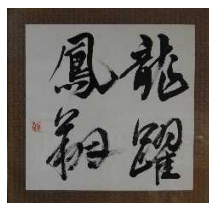 龍躍
鳳翔